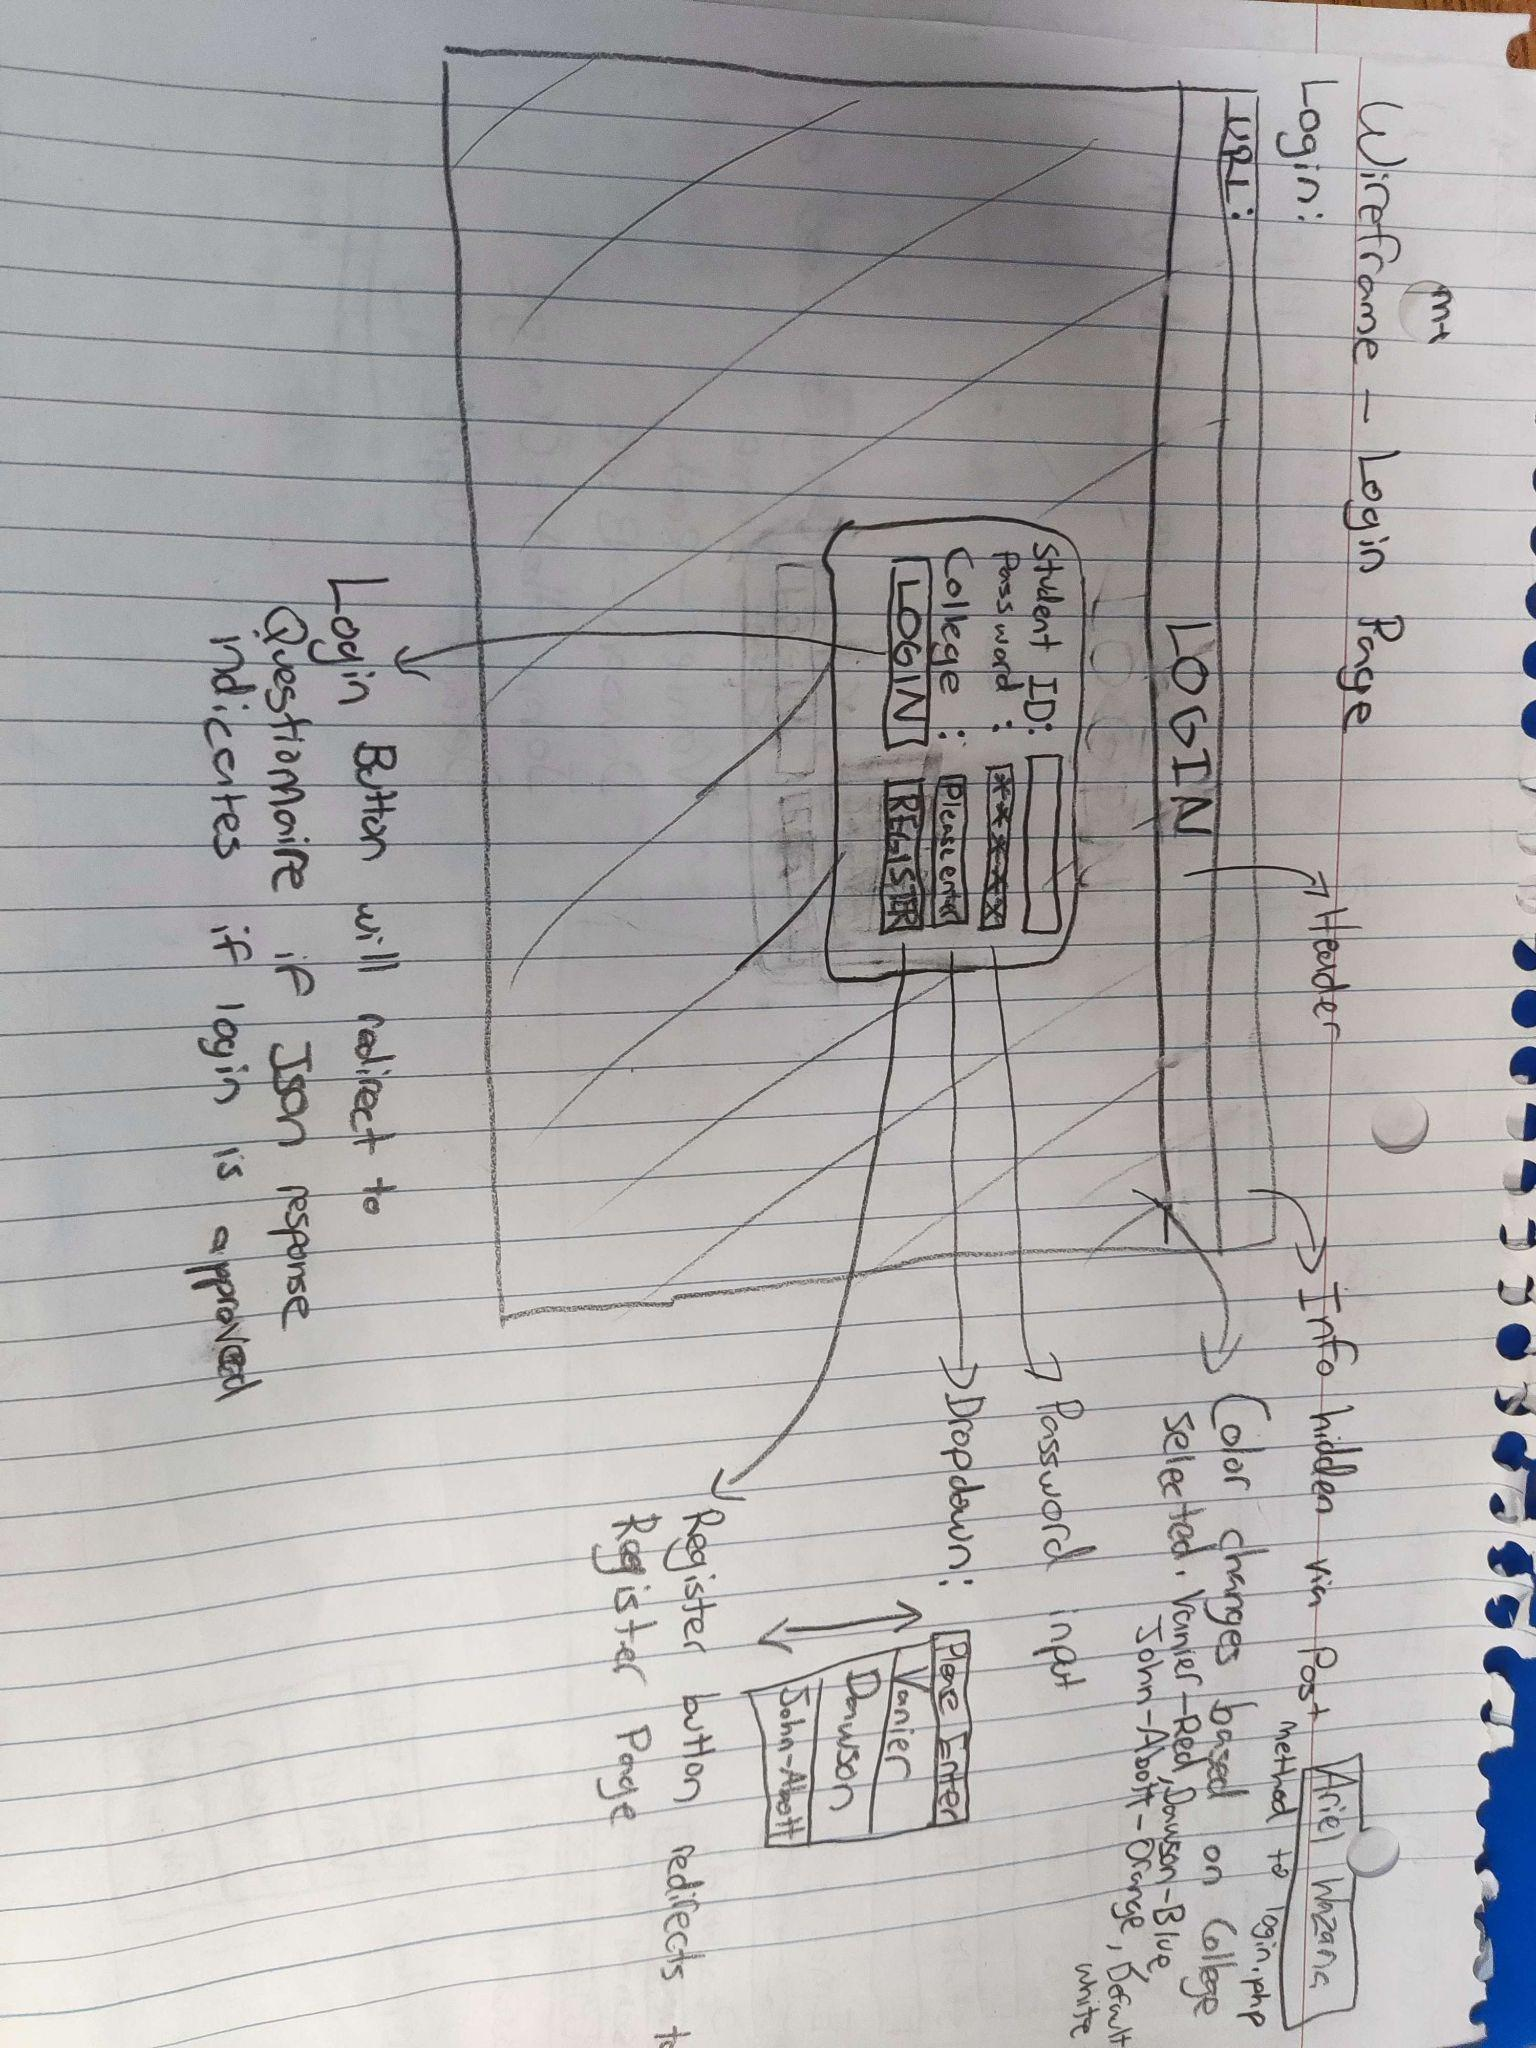 Wireframe - Login Page
Login:
URL:
LOGIN
Student ID:
Password :
*****
College :
Please enter
LOGIN
REGISTER
Header
Info hidden via Post method to login.php
Color changes based on College
selected. Vanier-Red, Dawson-Blue,
John-Abott-Orange, Default
white
Password input
Dropdown:
Please Enter
Vanier
Dawson
John-Abott
Register button redirects to
Register Page
Login Button will redirect to
Questionnaire if Json response
indicates if login is approved
Ariel